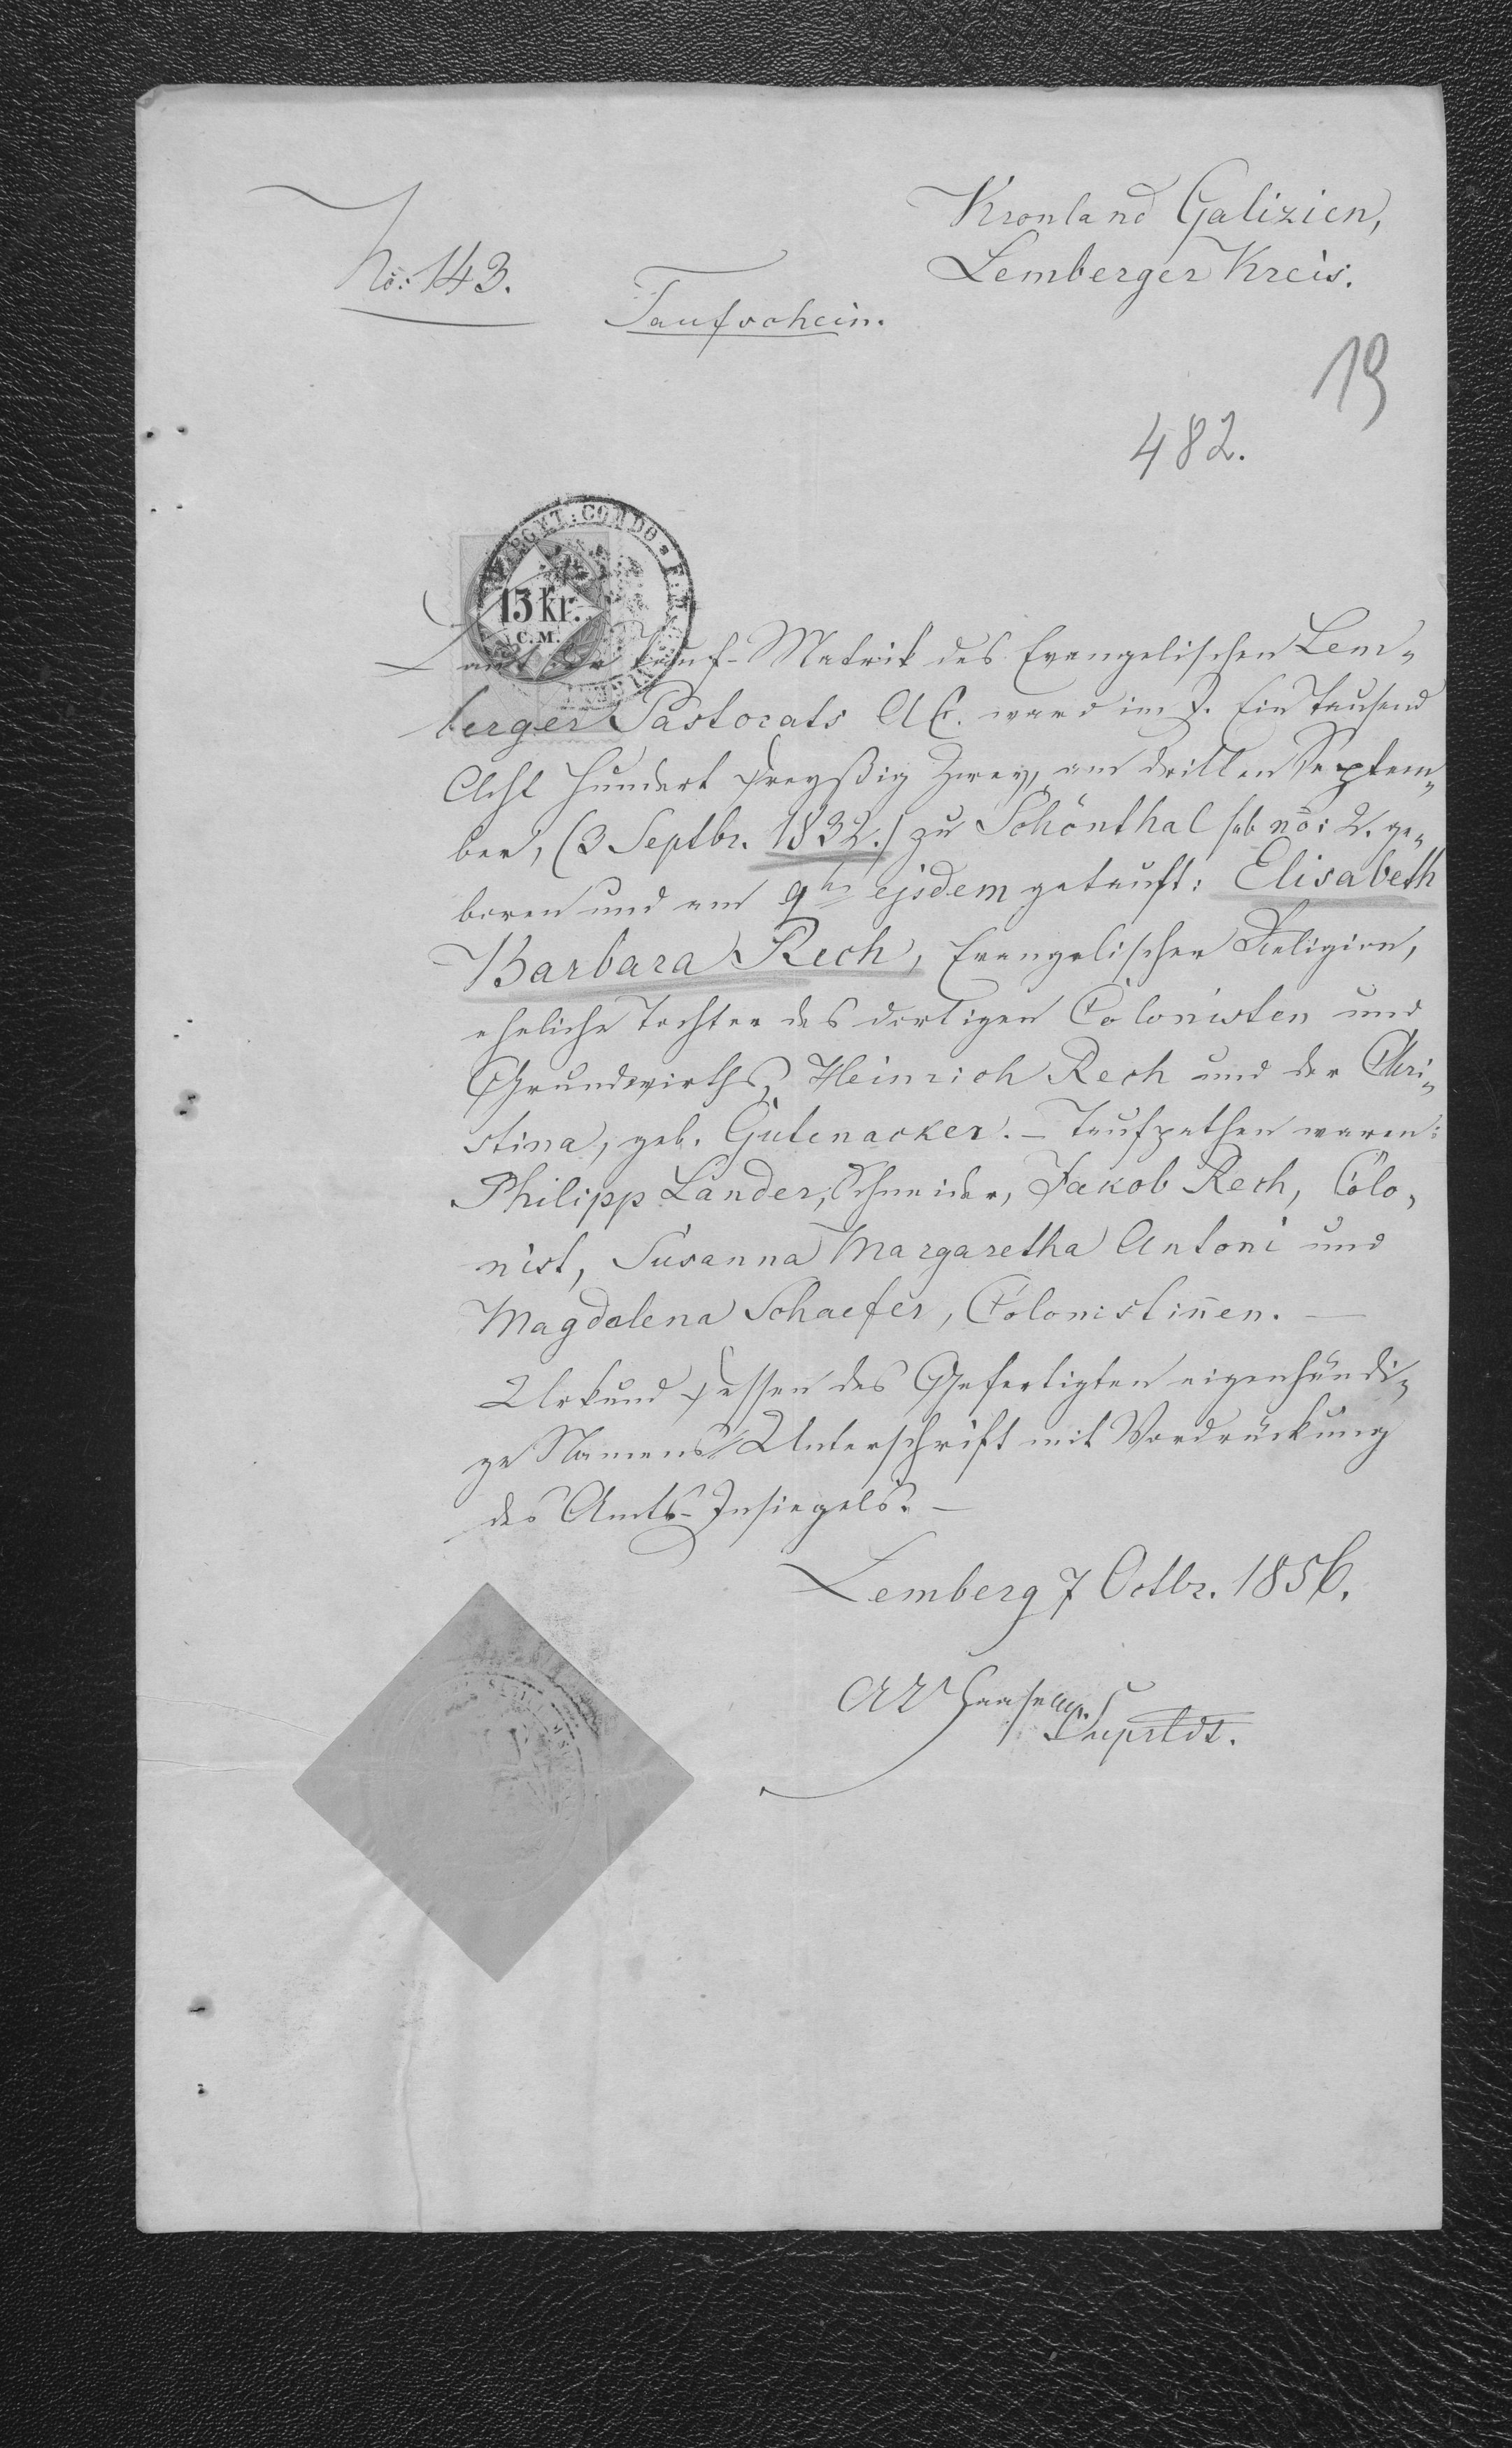 Kronland Galizien,
No: 143.
Lemberger Kreis.
Taufschein.
19
482.
15 kr.
C.M.
Laut der Tauf-Matrik des Evangelischen Lem-
berger Pastorats A.C. ward im J. Ein Tausend
Acht Hundert Dreyßig Zwey, am dritten Septem-
ber, (3 Septbr. 1832.) zu Schönthal sub no: 2. ge-
boren und am 9ten ejsdem getauft: Elisabeth
Barbara Rech, Evangelischer Religion,
eheliche Tochter des dortigen Colonisten und
Grundwirths, Heinrich Rech und der Chri-
stina, geb. Gutenacker. – Taufpathen waren:
Philipp Lander, Schneider, Jakob Rech, Colo-
nist, Susanna Margaretha Antoni und
Magdalena Schaefer, Colonistin̄en. —
Urkund dessen des Gefertigten eigenhändi-
ge Namens Unterschrift mit Vordrückung
des Amts-Insiegels. —
Lemberg 7 Octbr. 1856.
Haase mp.
Suprtdt.